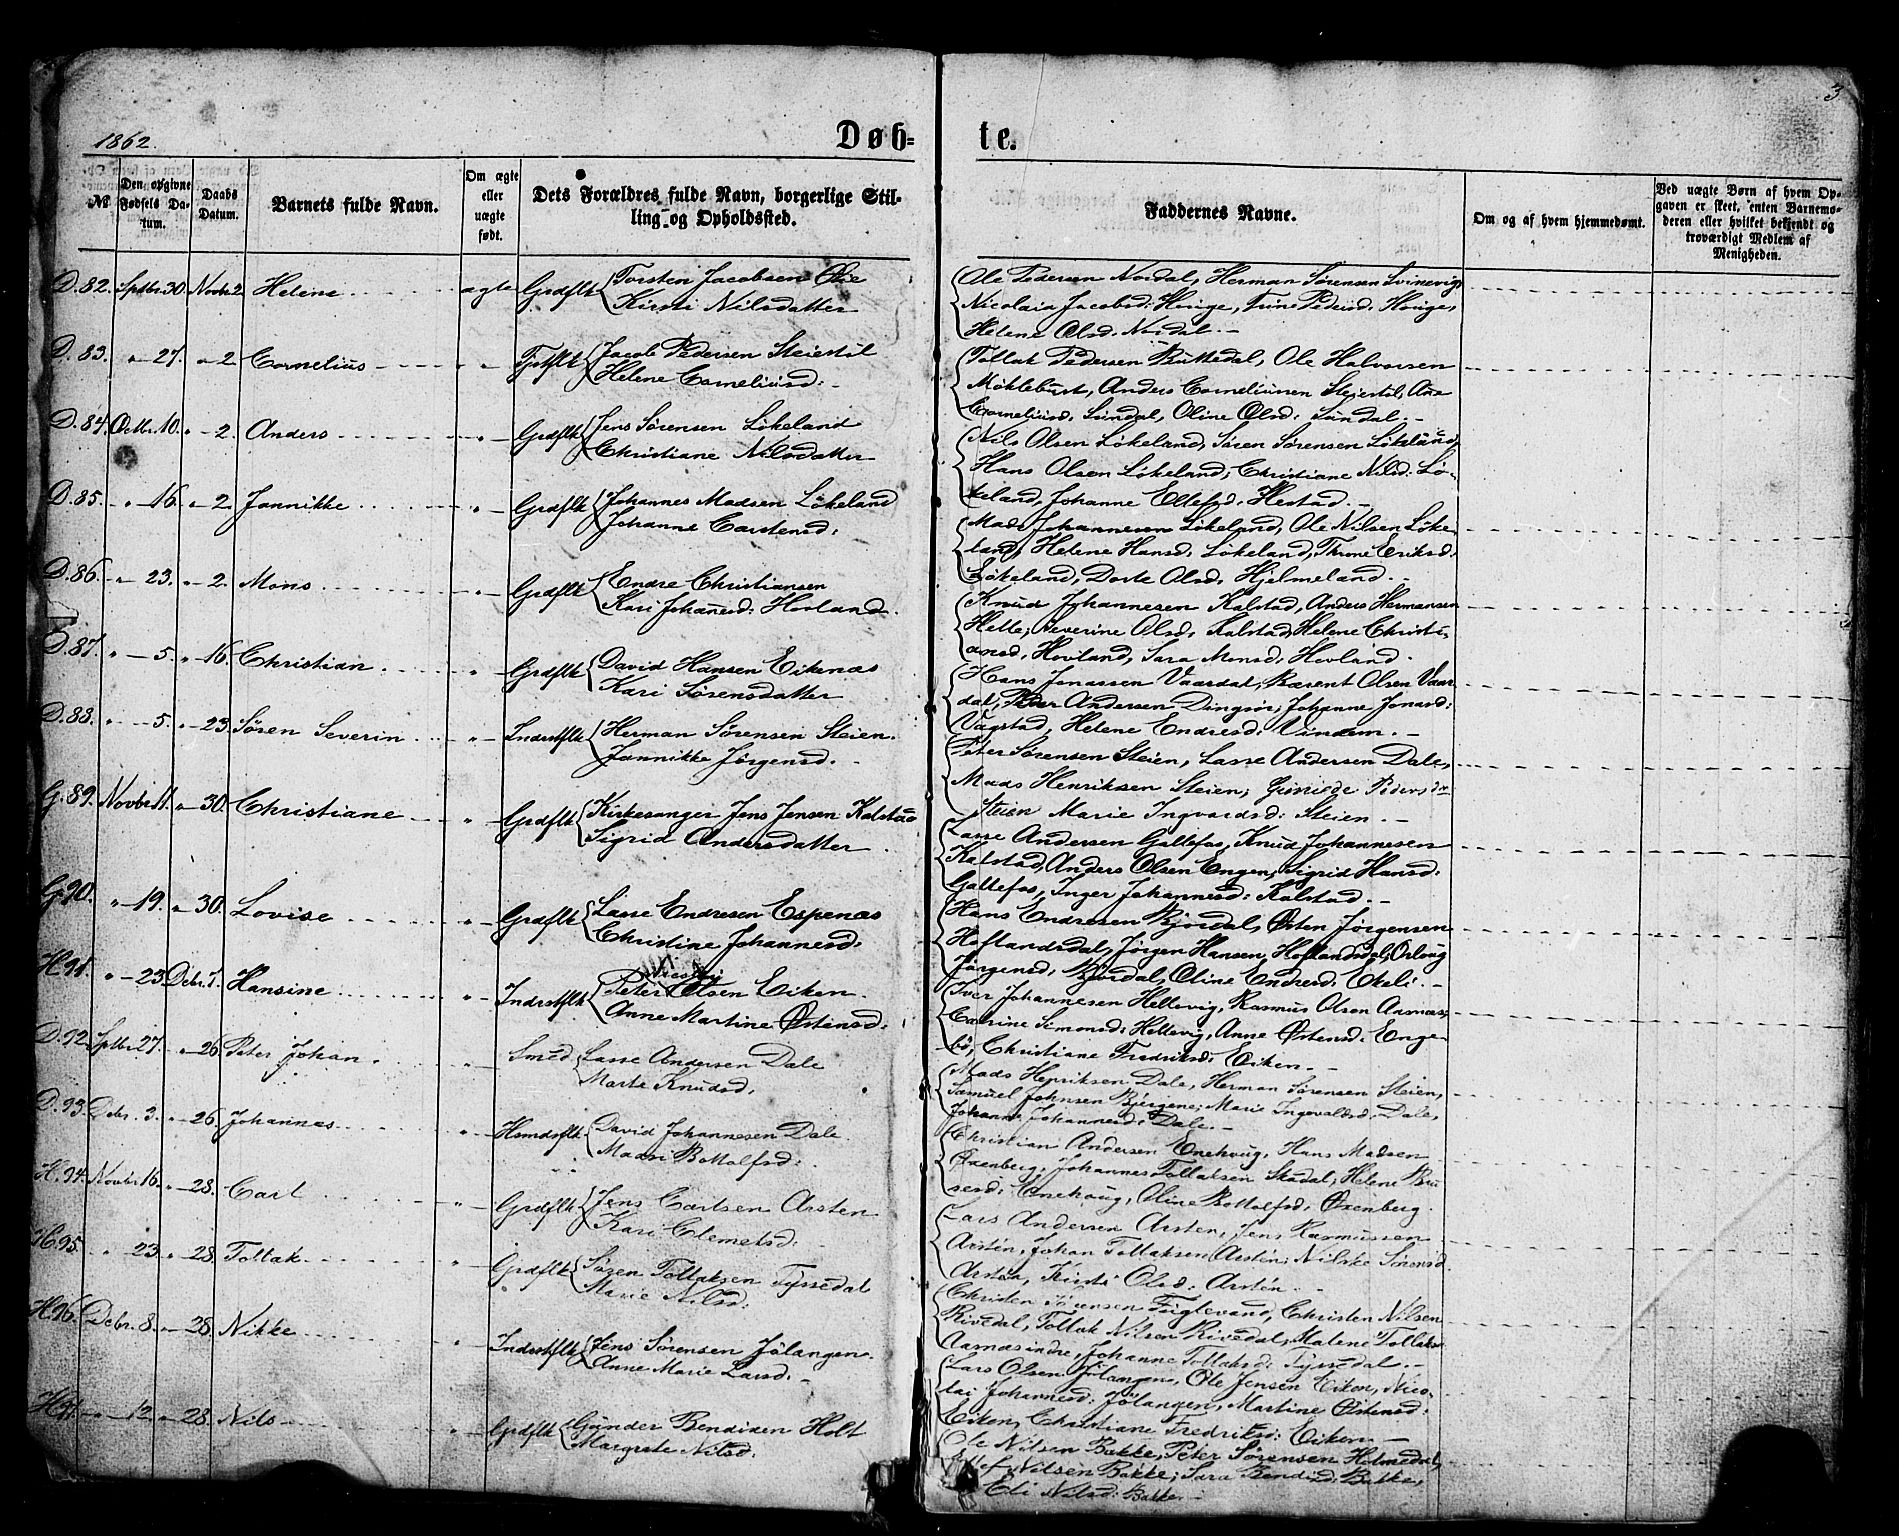 3
1862.
Døb= te.
№
Den opgivne Fødsels Datum.
Daabs Datum.
Barnets fulde Navn.
Om ægte eller uægte født.
Dets Forældres fulde Navn, borgerlige Stilling og Opholdssted.
Faddernes Navne.
Om og af hvem hjemmedøbt.
Ved uægte Børn af hvem Opgaven er skeet, enten Barnemoderen eller hvilket bekjendt og troværdigt Medlem af Menigheden.
D. 82. Sptbr. 30. Novbr 2 Helene ægte Grdflk Torsten Jacobsen Øie
Kirsti Nilsdatter
Ole Pedersen Nordal, Herman Sørensen Svinevig,
Nicolaia Jacobsd: Hovige, Trine Pedersd. Hovige,
Helene Olsd. Nordal. -
D. 83. " - 27. " - 2 Cornelius " Grdflk Jacob Pedersen Steiestil
Helene Corneliusd: -
Tollak Pedersen Buttedal, Ole Halvorsen
Møklebust, Anders Corneliussen Steiestil, Ane
Corneliusd. Sundal, Oline Olsd: Sundal. -
D. 84. Octbr. 10. " - 2. Anders " - Grdflk Jens Sørensen Løkeland
Christiane Nilsdatter
Nils Olsen Løkeland, Søren Sørensen Løkeland,
Hans Olsen Løkeland, Christiane Nilsd. Lø-
keland, Johanne Ellefsd. Hestad. -
D. 85. " - 16. " - 2. Jannikke " - Grdflk Johannes Madsen Løkeland
Johanne Carstensd:
Mads Johannesen Løkeland, Ole Nilsen Løke-
land, Helene Hansd. Løkeland, Thrine Eriksd.
Løkeland, Dorte Olsd. Hjelmeland. -
D. 86. " - 23. " - 2. Mons " - Grdflk Endre Christiansen
Kari Johannesd: Hovland.
Knud Johannesen Kalstad, Anders Hermansen
Helle, Severine Olsd. Kalstad, Helene Christi-
ansd. Hovland, Sara Monsd. Hovland.
D. 87. " - 5. " - 16. Christian " - Grdflk David Hansen Eikenæs
Kari Sørensdatter
Hans Jonassen Vaardal, Bærent Olsen Vaar-
dal, Peder Andersen Dingsør, Johanne Jonasd:
Vagstad, Helene Endresd. Vindem. -
D. 88. " - 5. " - 23. Søren Severin " - Indrstflk Herman Sørensen Steien.
Jannikke Jørgensd. -
Peter Sørensen Steien, Lasse Andersen Dale,
Mads Henriksen Steien, Pedersd
Steien Marie Ingvardsd: Steien. -
G. 89. Novbr 11. " - 30. Christiane " Grdflk Kirkesanger Jens Jensen Kalstad
Sigrid Andersdatter
Lasse Andersen Gallefos, Knud Johannesen
Kalstad, Anders Olsen Engen, Sigrid Hansd.
Gallefos, Inger Johannesd: Kalstad. -
G. 90. " - 19. " - 30. Lovise " Grdflk Lasse Endresen Espenæs
Christine Johannesd:
Hans Endresen Bjordal, Østen Jørgensen
Hoflandsdal, Jørgen Hansen Hoflandsdal, Orloug
Jørgensd. Bjordal, Oline Endresd: Ekeli. -
H. 91. " - 23 Decbr. 7. Hansine " - Indrstflk Peter Olsen Eiken.
Anne Martine Østensd:
Iver Johannesen Hellevig, Rasmus Olsen Aarnæs,
Catrine Simonsd: Hellevig, Anne Østensd. Enge-
bø, Christiane Fredriksd: Eiken. -
D. 92. Sptbr. 27. " - 26. Peter Johan. " - Smed Lasse Andersen Dale
Marte Knudsd.
Mads Henriksen Dale, Herman Sørensen Steien,
Samuel Johnsen Bjergene, Marie Ingevaldsd: Dale,
Johanne Johannesd: Dale. -
D. 93. Decbr. 3. " - 26. Johannes " - Hsmdsflk David Johannesen Dale.
Madsi Bottolfsd:
Christian Andersen Enehoug, Hans Madsen
Øxenberg, Johannes Tollaksen Skadal, Helene
Enehoug, Oline Bottolfsd: Øxenberg.
H. 94. Novbr 16. " - 28. Carl " - Grdflk Jens Carlsen Arsten
Kari Clemetsd.
Lars Andersen Arsten, Jens Rasmussen
Arsten, Johan Tollaksen Arsten, Nilske Sørensd.
Arsten, Kirsti Olsd. Arsten. -
H. 95. " 23. " 28. Tollak " - Grdflk Søren Tollaksen Tyssedal
Marie Nilsd:
Christen Sørensen Fuglevand, Christen Nilsen
Rivedal, Tollak Nilsen Rivedal, Malene Tollaksd.
Aarnæs indre, Johanne Tollaksd: Tyssedal. -
H. 96. Decbr. 8. " - 28. Nikke " Indrstflk Jens Sørensen Jølangen.
Anne Marie Larsd: -
Lars Olsen Jølangen, Ole Jensen Eiken, Nico-
lai Johannesd: Jølangen, Martine Østensd:
Eiken, Christiane Fredriksd: Eiken. -
H. 97. " - 12. " 28. Nils " - Grdflk Gunder Bendixen Holt
Margrete Nilsd:
Ole Nilsen Bakke, Peter Sørensen Holmedal,
Ellef Nilsen Bakke, Sara Bendixd: Bakke,
Eli Nilsd: Bakke. -